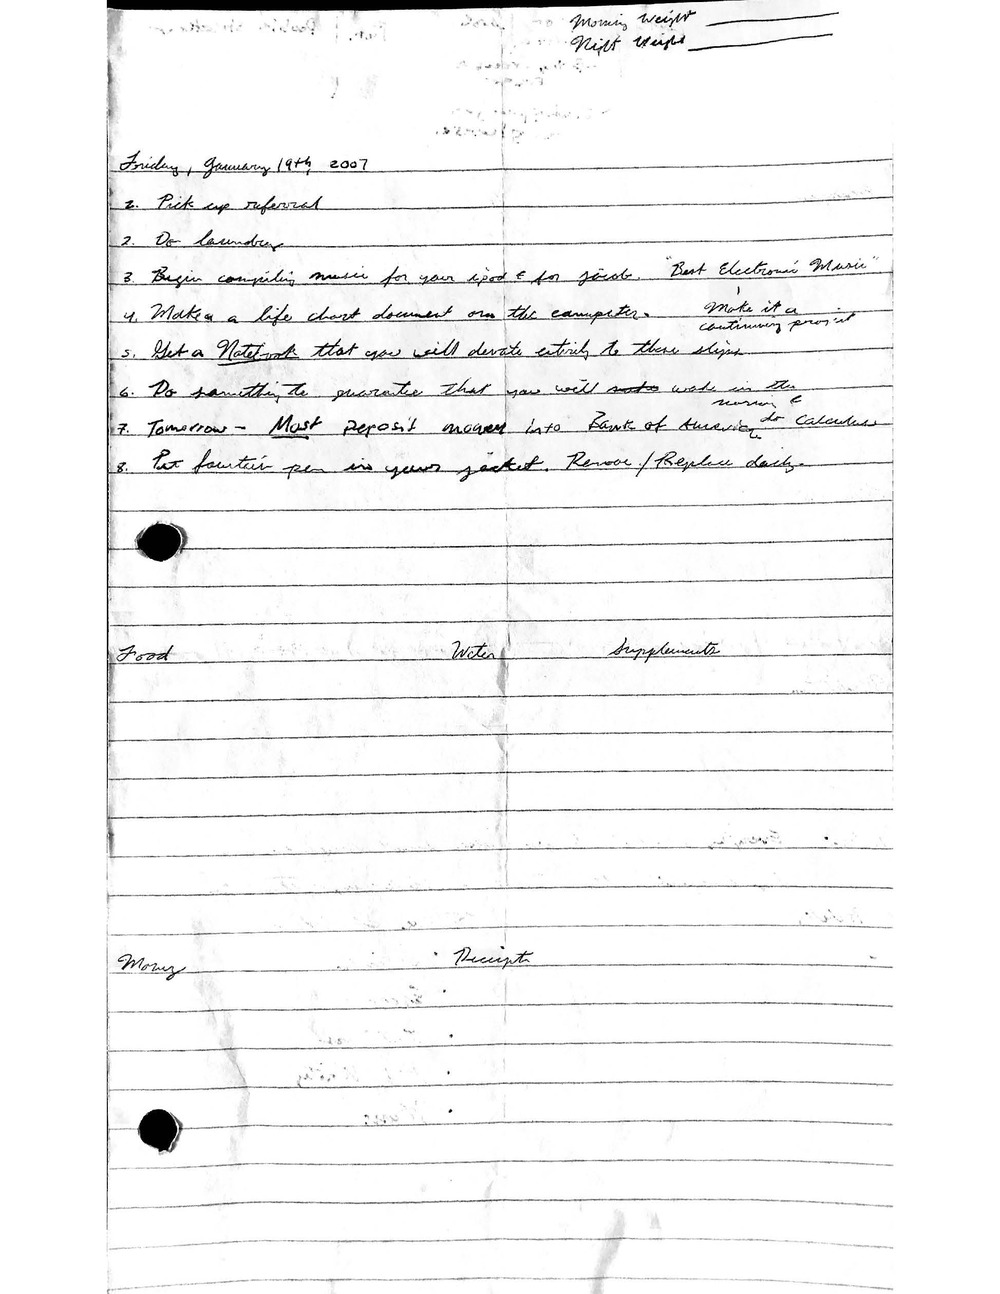 Morning Weight
Night Weight
Friday, January 19th, 2007
2. Pick up referral
2. Do laundry
3. Begin compiling music for your ipod & for Jacob. "Best Electronic Music"
4. Make a a life chart document on the computer. Make it a
continuing project
5. Get a Notebook that you will devote entirely to these steps
6. Do something to guarantee that you will wake in the
morning &
7. Tomorrow - Must Deposit money into Bank of America do Calculus
8. Put fountain pen in your jacket. Remove / Replace daily.
Food Water Supplements
Money Receipts